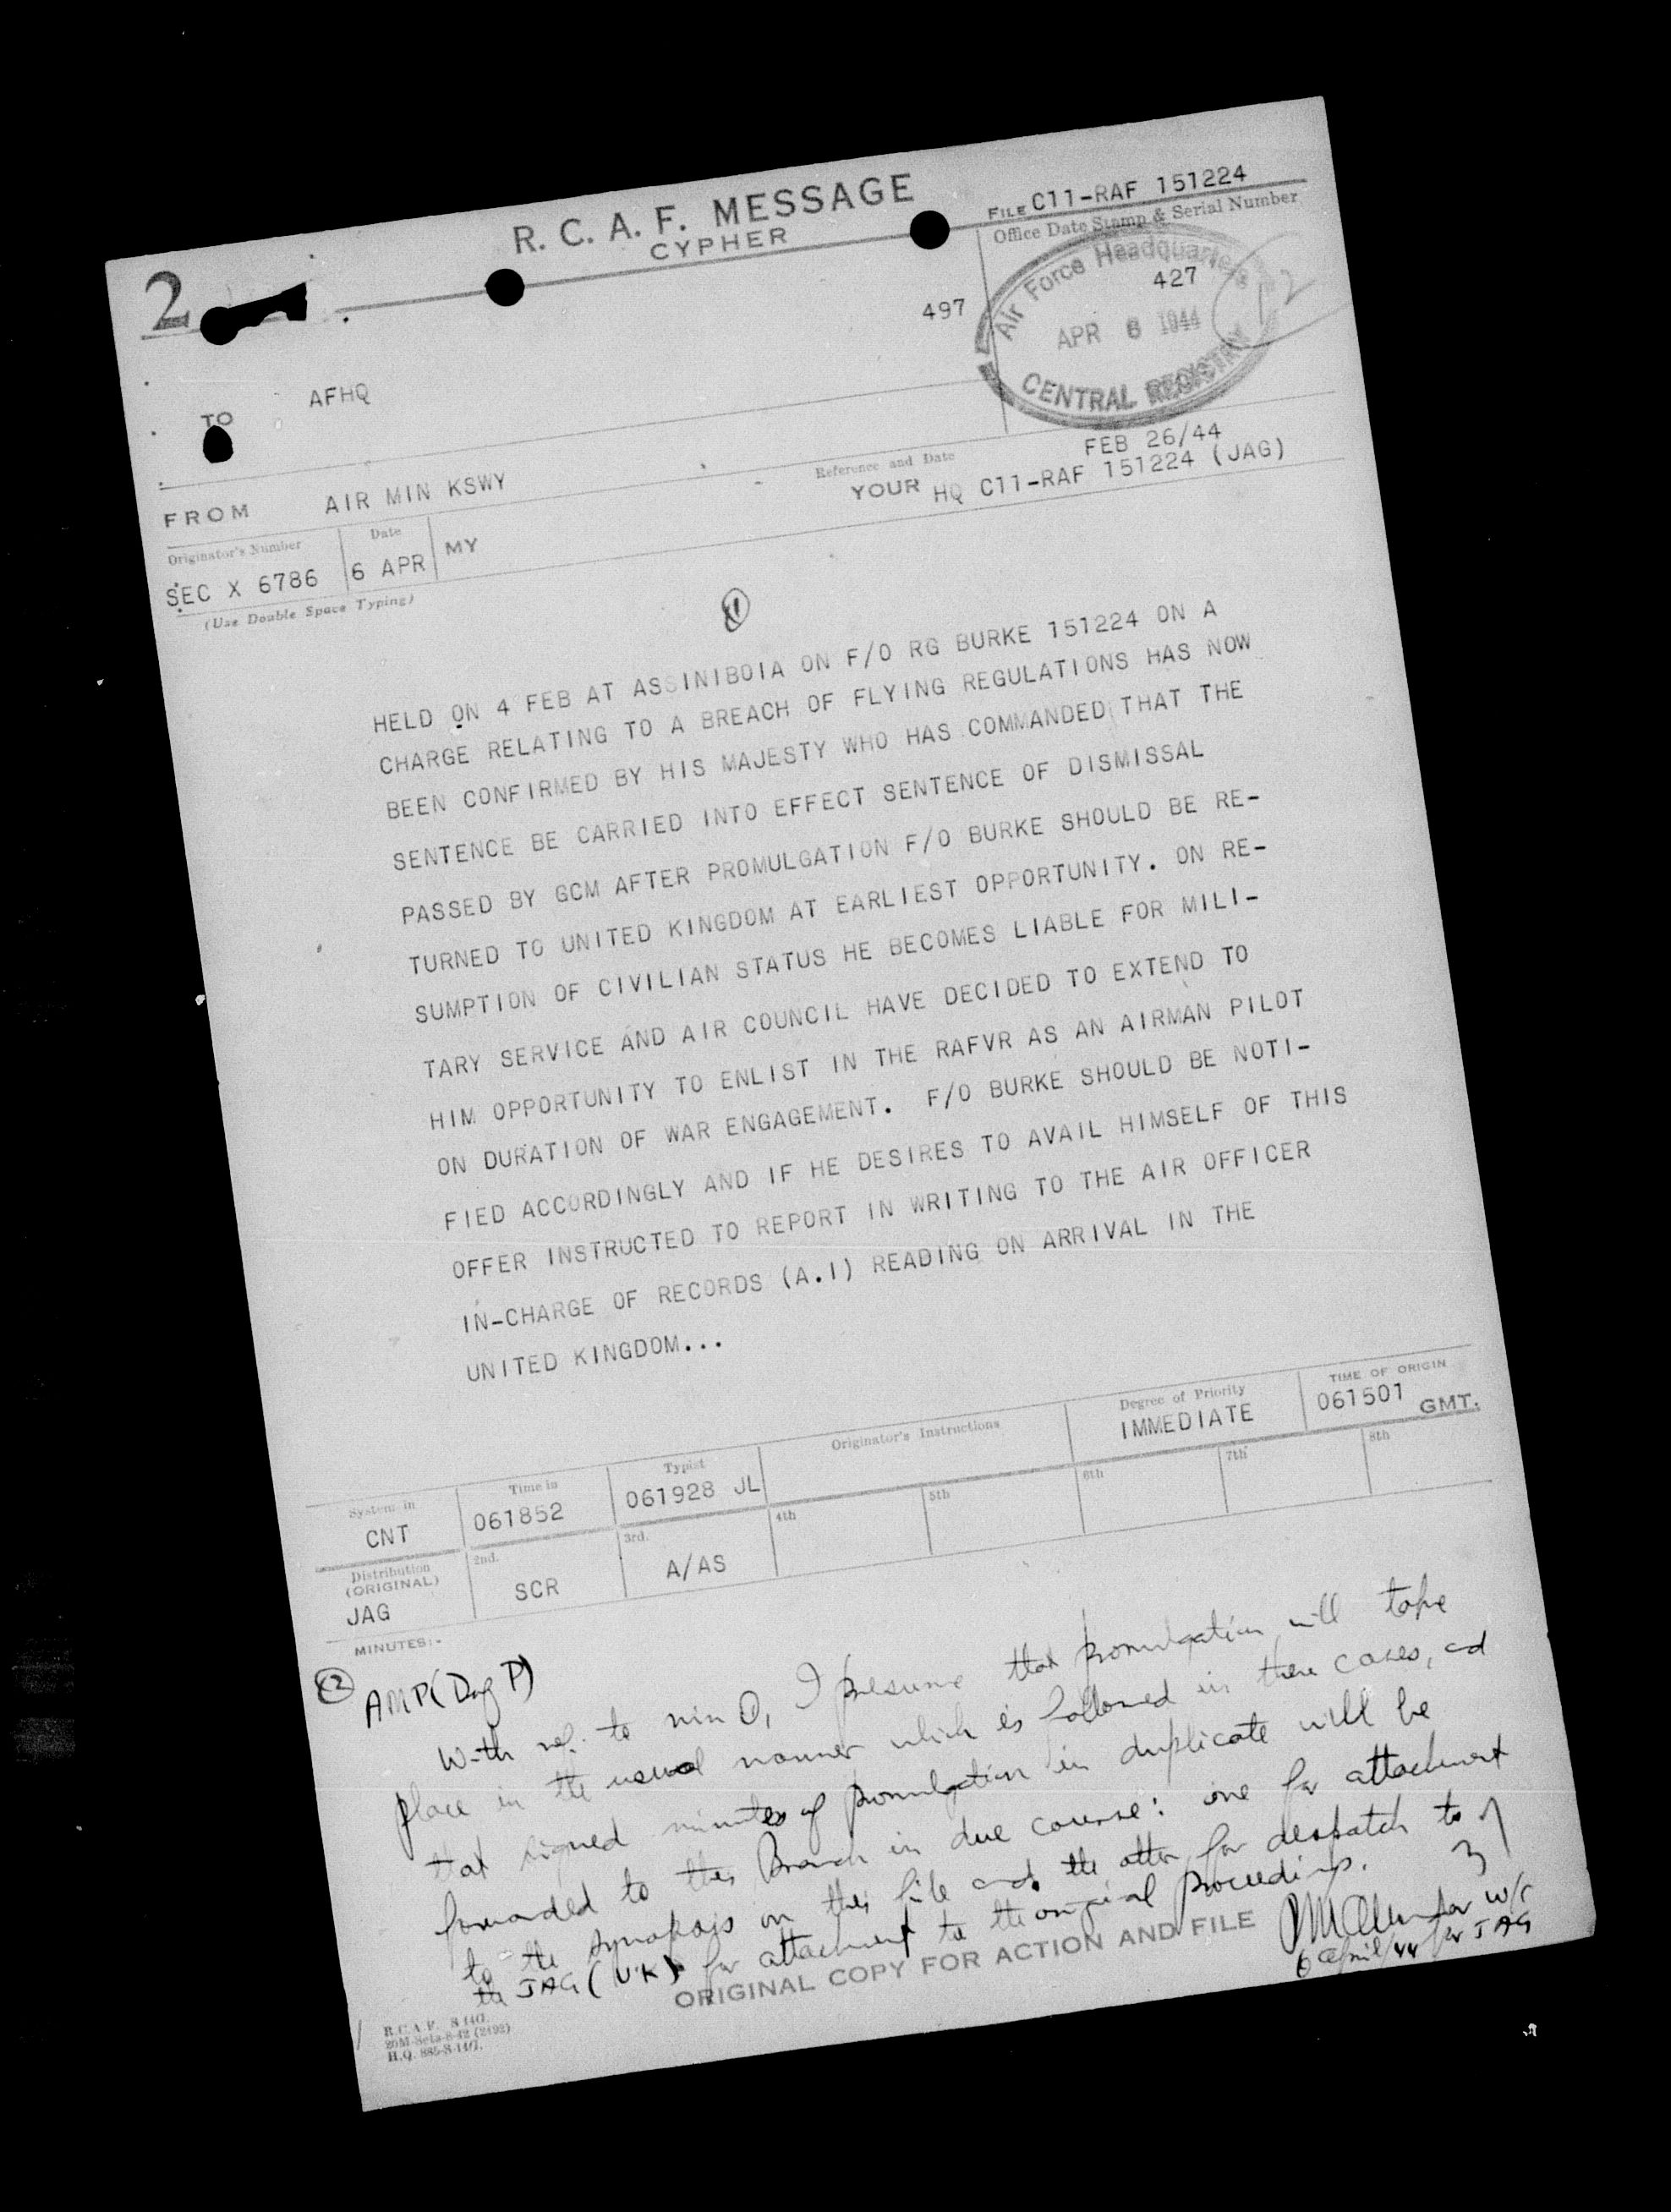 R. C. A. F. MESSAGE
CYPHER
FILE C11-RAF 151224
Office Date Stamp & Serial Number
2
497
427
Air Force Headquarters
APR 6 1944
CENTRAL REGISTRY
12
TO AFHQ
FROM AIR MIN KSWY
Reference and Date
FEB 26/44
YOUR HQ C11-RAF 151224 (JAG)
Originator's Number
Date
SEC X 6786
6 APR
MY
(Use Double Space Typing)
1
HELD ON 4 FEB AT ASSINIBOIA ON F/O RG BURKE 151224 ON A
CHARGE RELATING TO A BREACH OF FLYING REGULATIONS HAS NOW
BEEN CONFIRMED BY HIS MAJESTY WHO HAS COMMANDED THAT THE
SENTENCE BE CARRIED INTO EFFECT SENTENCE OF DISMISSAL
PASSED BY GCM AFTER PROMULGATION F/O BURKE SHOULD BE RE-
TURNED TO UNITED KINGDOM AT EARLIEST OPPORTUNITY. ON RE-
SUMPTION OF CIVILIAN STATUS HE BECOMES LIABLE FOR MILI-
TARY SERVICE AND AIR COUNCIL HAVE DECIDED TO EXTEND TO
HIM OPPORTUNITY TO ENLIST IN THE RAFVR AS AN AIRMAN PILOT
ON DURATION OF WAR ENGAGEMENT. F/O BURKE SHOULD BE NOTI-
FIED ACCORDINGLY AND IF HE DESIRES TO AVAIL HIMSELF OF THIS
OFFER INSTRUCTED TO REPORT IN WRITING TO THE AIR OFFICER
IN-CHARGE OF RECORDS (A.I) READING ON ARRIVAL IN THE
UNITED KINGDOM...
System in
CNT
Time in
061852
Typist
061928 JL
Originator's Instructions
Degree of Priority
IMMEDIATE
TIME OF ORIGIN
061501 GMT.
Distribution
(ORIGINAL)
JAG
2nd.
SCR
3rd.
A/AS
4th
5th
6th
7th
8th
MINUTES:-
2 AMP (D of P)
With ref. to min 1, I presume that promulgation will take
place in the usual manner which is followed in these cases, and
that signed minutes of promulgation in duplicate will be
forwarded to this Branch in due course: one for attachment
to the synopsis on this file and the other for despatch to
the JAG (U.K) for attachment to the original proceedings.
W/C
6 April/44 for JAG
ORIGINAL COPY FOR ACTION AND FILE
R.C.A.F. S 140.
20M-Sets-8-42 (2492)